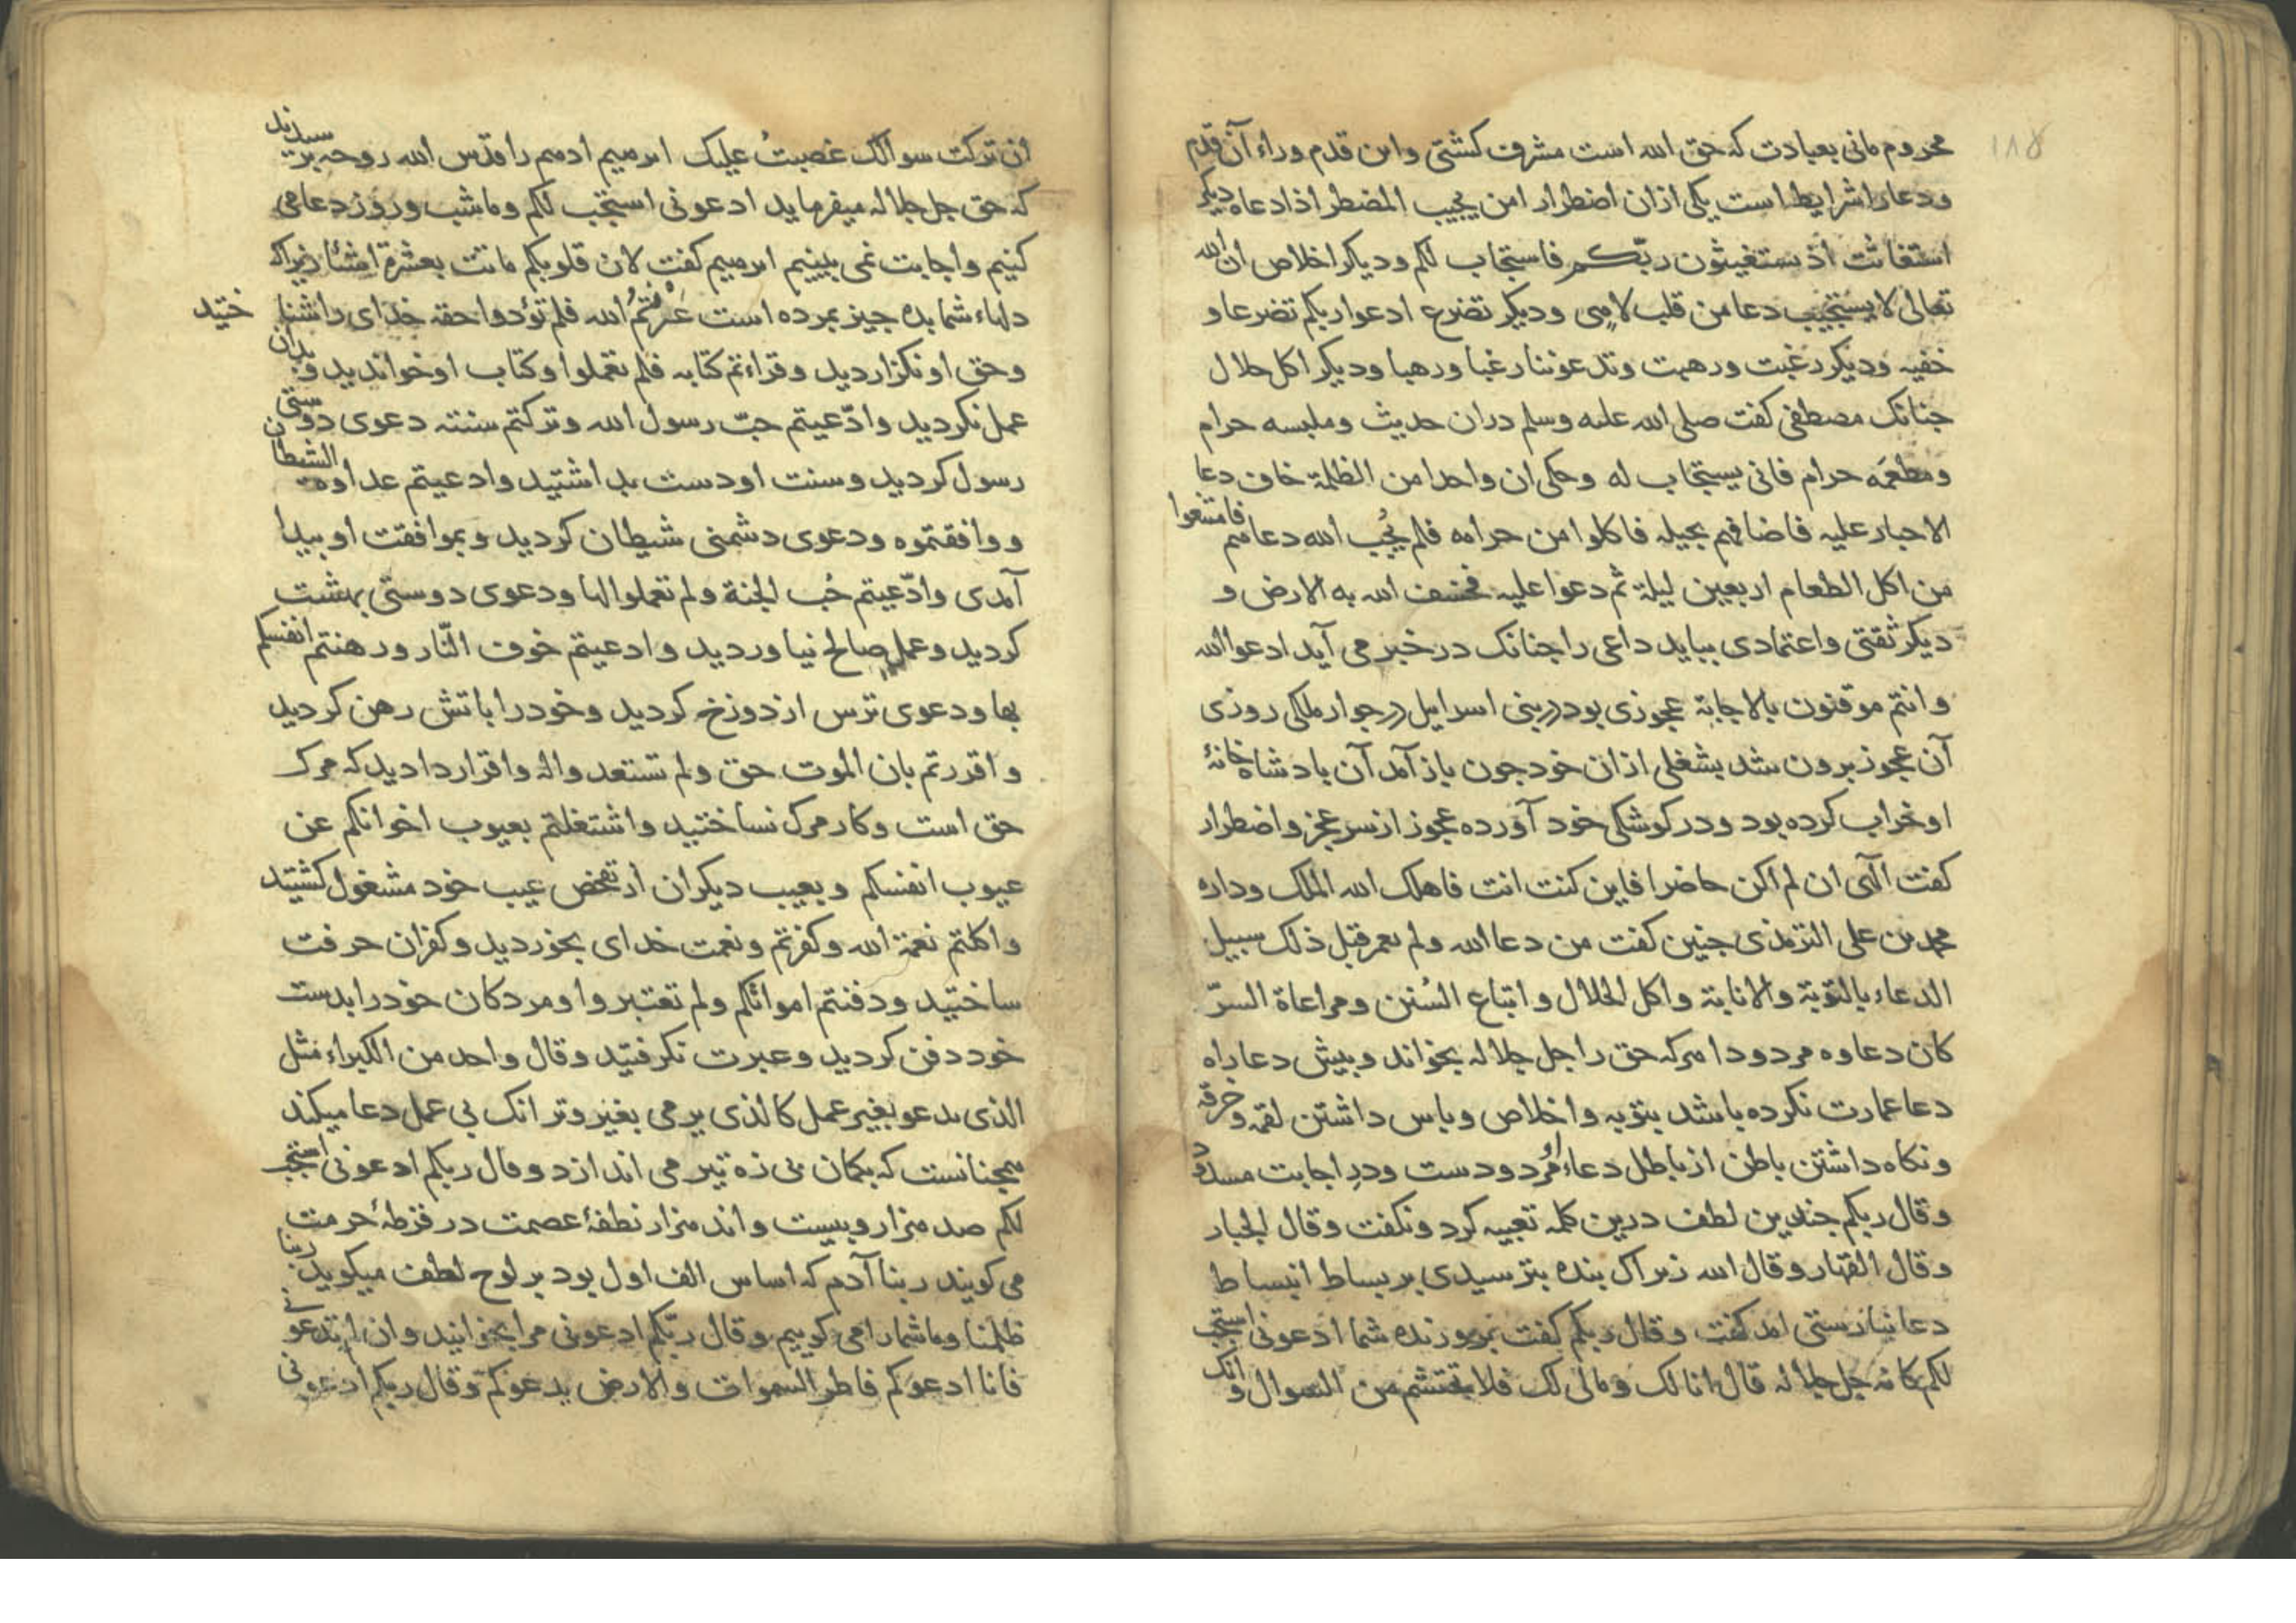 ١٨٥
محروم مانی بعبادت که حق الله است مشرف کشتی واین قدم وراء آن قدم
ودعارا شرایط است یکی ازان اضطرار امن یجیب المضطر اذا دعاه دیکر
استغاثت اذ تستغیثون ربّکم فاستجاب لکم ودیکر اخلاص ان الله
تعالی لا یستجیب دعا من قلب لاهی ودیکر تضرع ادعوا ربکم تضرعا و
خفیه ودیکر رغبت ورهبت وتدعوننا رغبا ورهبا ودیکر اکل حلال
جنانک مصطفی کفت صلی الله علیه وسلم دران حدیث وملبسه حرام
ومطعمه حرام فانی یستجاب له وحکی ان واحدا من الظلمة خاف دعا
الاحبار علیه فاضافهم بحیله فاکلوا من حرامه فلم یُجب الله دعاهم فامتنعوا
من اکل الطعام اربعین لیلة ثم دعوا علیه فخسف الله به الارض و
دیکر ثقتی واعتمادی بباید داعی را جنانک در خبر می آید ادعوا الله
وانتم موقنون بالاجابة عجوزی بود در بنی اسرایل در جوار ملکی روزی
آن عجوز برون شد بشغلی ازان خود جون باز آمد آن بادشاه خانهٔ
او خراب کرده بود ودر کوشکی خود آورده عجوز از سر عجز واضطرار
کفت الهی ان لم اکن حاضرا فاین کنت انت فاهلک الله الملک وداره
محمد بن علی الترمذی جنین کفت من دعا الله ولم یعمر قبل ذلک سبیل
الدعاء بالتوبة والانابة واکل الحلال واتباع السُنن ومراعاة السرّ
کان دعاوه مردودا هرکه حق را جل جلاله بخواند وبیش دعا راه
دعا عمارت نکرده باشد بتوبه واخلاص وباس داشتن لقمه وخرقه
ونکاه داشتن باطن از باطل دعاء او مُرد ودست ودرِ اجابت مسدود
وقال ربکم جندین لطف درین کلمه تعبیه کرد ونکفت وقال الجبار
وقال القهار وقال الله زیراک بنده بترسیدی بر بساط انبساط
دعا نیارستی امد کفت وقال ربکم کفت برورنده شما ادعونی استجب
لکم کانه جل جلاله قال انا لک ومالی لک فلا تحتشم من السوال وانک
ان ترکت سوالک غضبتُ علیک ابرهیم ادهم را قدس الله روحه برسیدند
که حق جل جلاله میفرماید ادعونی استجب لکم وما شب وروز دعا می
کنیم واجابت نمی بینیم ابرهیم کفت لان قلوبکم ماتت بعشرة اشیا زیراک
دلهاء شما بده جیز بمرده است عَرَفْتُمُ الله فلم تؤدوا حقه خدای را شناختید
وحق او نکزاردید وقراءتم کتابه فلم تعملوا وکتاب او خواندید وبدان
عمل نکردید وادّعیتم حبّ رسول الله وترکتم سنته دعوی دوستی
رسول کردید وسنت او دست بداشتید وادعیتم عداوة الشیطان
ووافقتموه ودعوی دشمنی شیطان کردید وبموافقت او بیدا
آمدی وادّعیتم حُب الجنة ولم تعملوا لها ودعوی دوستی بهشت
کردید وعمل صالح نیاوردید وادعیتم خوف النّار ورهنتم انفسکم
بها ودعوی ترس از دوزخ کردید وخود را باتش رهن کردید
واقررتم بان الموت حق ولم تستعدوا له واقرار دادید که مرک
حق است وکار مرک نساختید واشتغلتم بعیوب اخوانکم عن
عیوب انفسکم وبعیب دیکران از تفحص عیب خود مشغول کشتید
واکلتم نعمة الله وکفرتم ونعمت خدای بخوردید وکفران حرفت
ساختید ودفنتم امواتکم ولم تعتبروا ومردکان خود را بدست
خود دفن کردید وعبرت نکرفتید وقال واحد من الکبراء مثل
الذی یدعو بغیر عمل کالذی یرمی بغیر وتر انک بی عمل دعا میکند
همجنانست که بکمان بی زه تیر می اندازد وقال ربکم ادعونی استجب
لکم صد هزار وبیست واند هزار نطفهٔ عصمت در قرطهٔ حرمت
می کویند ربنا آدم که اساس الف اول بود بر لوح لطف میکوید ربنا
ظلمنا وما شما را می کوییم وقال ربّکم ادعونی مرا بخوانید وان لم تدعونی
فانا ادعوکم فاطر السموات والارض یدعوکم وقال ربکم ادعونی